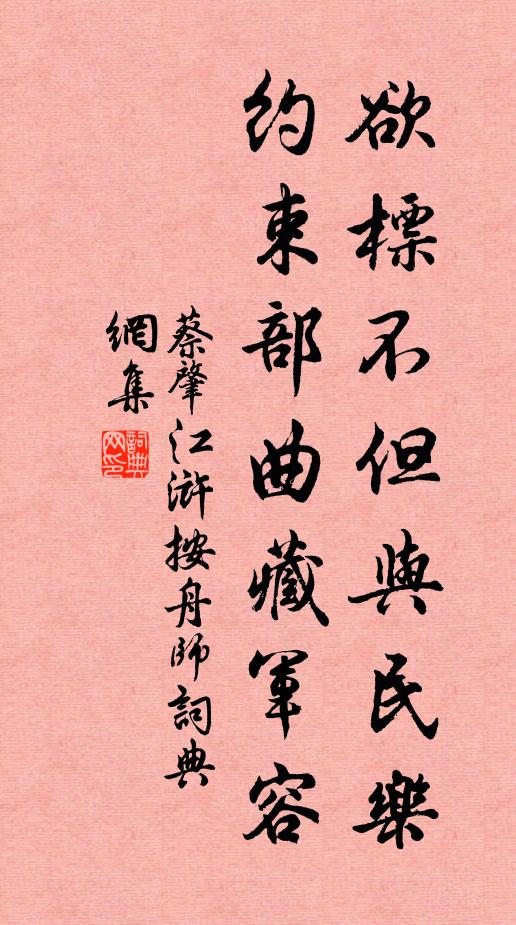 欲標不但與民樂
約束部曲藏軍容
蔡肇江滸按舟師詞典
網集
詞典
网印